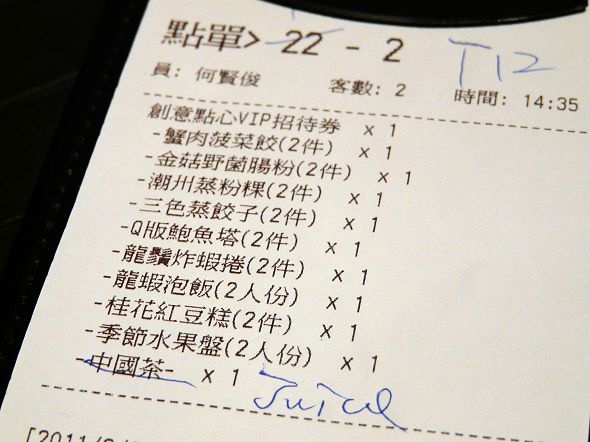 點單> 22 - 2 T12
員: 何賢俊 客數: 2 時間: 14:35
創意點心VIP招待券 x 1
-蟹肉菠菜餃(2件) x 1
-金菇野菌腸粉(2件) x 1
-潮州蒸粉粿(2件) x 1
-三色蒸餃子(2件) x 1
-Q版鮑魚塔(2件) x 1
-龍鬚炸蝦捲(2件) x 1
-龍蝦泡飯(2人份) x 1
-桂花紅豆糕(2件) x 1
-季節水果盤(2人份) x 1
-中國茶- x 1 Juice
[2011/